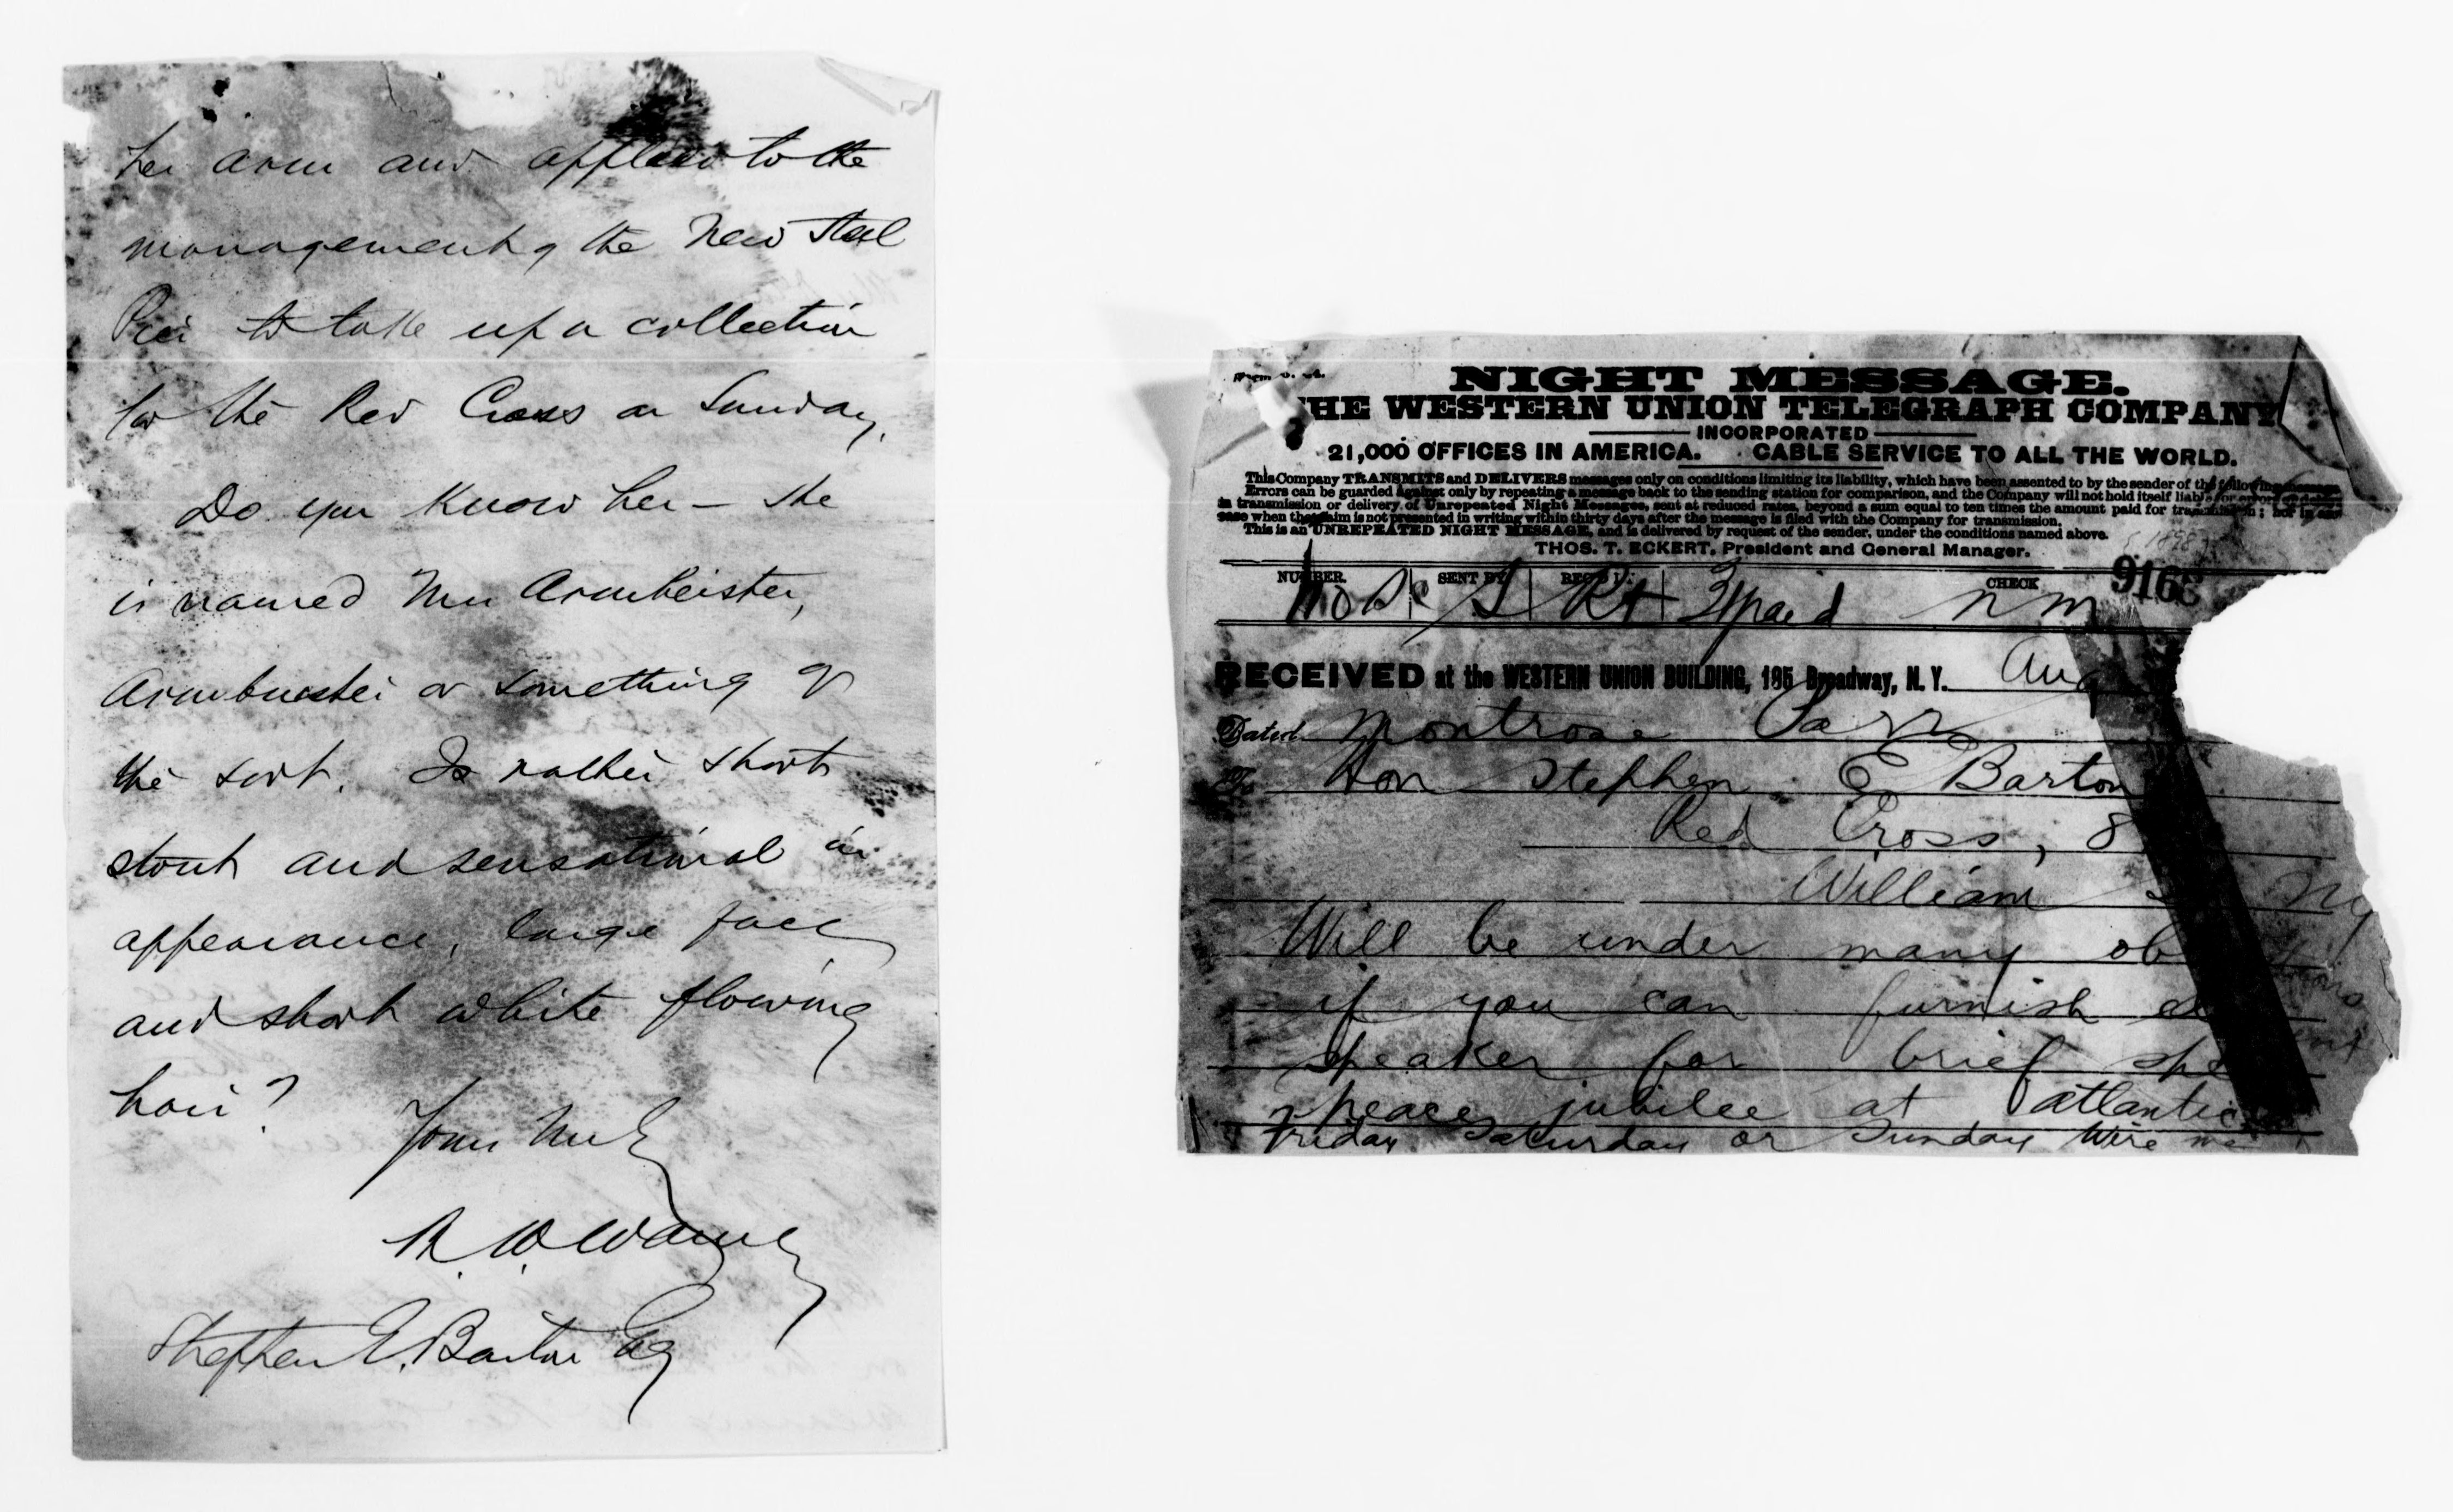 her arm and applied to the
management of the New Steel
Pier to take up a collection
for the Red Cross on Sunday.
Do you know her – she
is named Mrs Armbeister,
Armbuester or something of
the sort. Is rather short
stout and sensational in
appearance, large face
and short white flowing
hair?
Yours truly
Stephen E. Barton Esq
NIGHT MESSAGE.
THE WESTERN UNION TELEGRAPH COMPANY
INCORPORATED
21,000 OFFICES IN AMERICA. CABLE SERVICE TO ALL THE WORLD.
This Company TRANSMITS and DELIVERS messages only on conditions limiting its liability, which have been assented to by the sender of the following message.
Errors can be guarded against only by repeating a message back to the sending station for comparison, and the Company will not hold itself liable for errors or delays
in transmission or delivery of Unrepeated Night Messages, sent at reduced rates, beyond a sum equal to ten times the amount paid for transmission; nor in any
case when the claim is not presented in writing within thirty days after the message is filed with the Company for transmission.
This is an UNREPEATED NIGHT MESSAGE, and is delivered by request of the sender, under the conditions named above.
THOS. T. ECKERT, President and General Manager.
NUMBER SENT BY REC'D BY CHECK
9168
paid n m
RECEIVED at the WESTERN UNION BUILDING, 195 Broadway, N. Y. Aug
Dated Montrose Pa
To Hon Stephen E Barton
Red Cross, 8
William Ny
Will be under many ob
if you can furnish
speaker for brief
peace jubilee at atlantic
Friday Saturday or Sunday Wire me